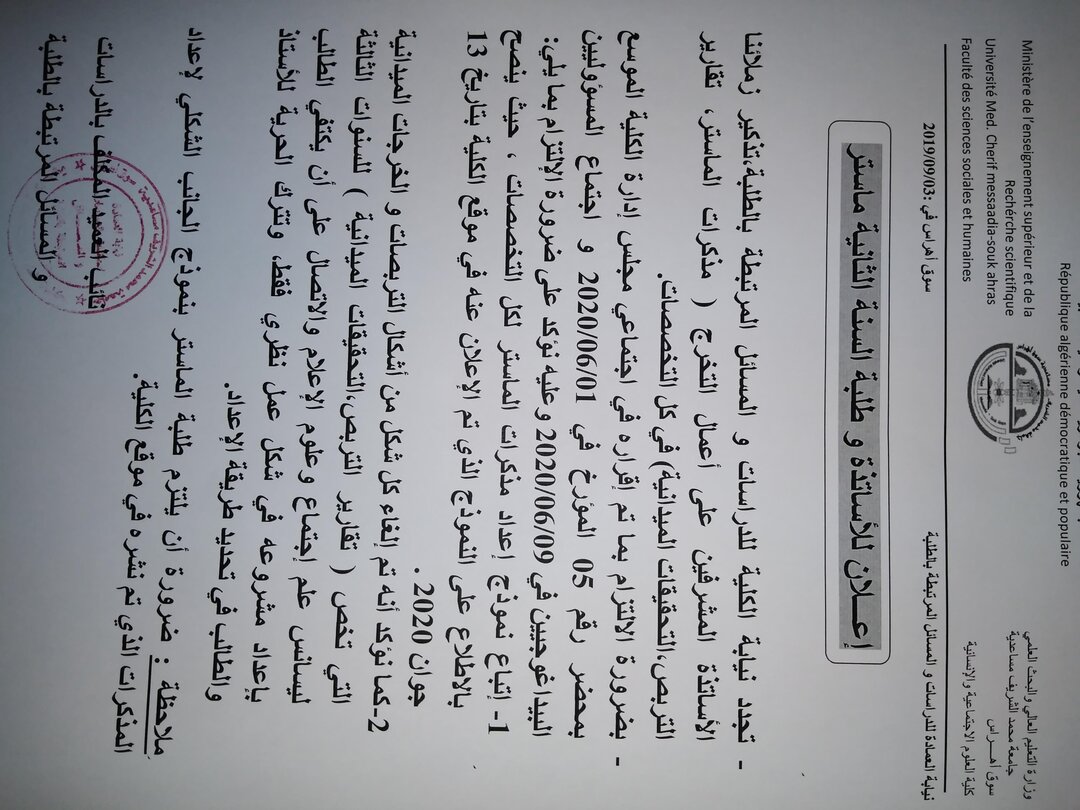 République algérienne démocratique et populaire
Ministère de l'enseignement supérieur et de la
Rechérche scientifique
Université Med. Cherif messaadia-souk ahras
Faculté des sciences sociales et humaines
وزارة التعليم العالي والبحث العلمي
جامعة محمد الشريف مساعدية
سوق أهــراس
كلية العلوم الاجتماعية والإنسانية
نيابة العمادة للدراسات و المسائل المرتبطة بالطلبة
سوق أهراس في :2019/09/03
إعــلان للأساتذة و طلبة السنة الثانية ماستر
- تجدد نيابة الكلية للدراسات و المسائل المرتبطة بالطلبة،تذكير زملائنا
الأساتذة المشرفين على أعمال التخرج ( مذكرات الماستر، تقارير
التربص،التحقيقات الميدانية) في كل التخصصات.
- بضرورة الالتزام بما تم إقراره في اجتماعي مجلس إدارة الكلية الموسع
بمحضر رقم 05 المؤرخ في 2020/06/01 و اجتماع المسؤوليين
البيداغوجيين في 2020/06/09 وعليه نؤكد على ضرورة الإلتزام بما يلي:
1- إتباع نموذج إعداد مذكرات الماستر لكل التخصصات ، حيث ينصح
بالاطلاع على النموذج الذي تم الإعلان عنه في موقع الكلية بتاريخ 13
جوان 2020 .
2-كما نؤكد أنه تم إلغاء كل شكل من أشكال التربصات و الخرجات الميدانية
التي تخص ( تقارير التربص،التحقيقات الميدانية ) للسنوات الثالثة
ليسانس علم إجتماع وعلوم الإعلام والاتصال على أن يكتفي الطالب
بإعداد مشروعه في شكل عمل نظري فقط، وتترك الحرية للأستاذ
والطالب في تحديد طريقة الإعداد.
ملاحظة : ضرورة أن يلتزم طلبة الماستر بنموذج الجانب الشكلي لإعداد
المذكرات الذي تم نشره في موقع الكلية.
نائب العميد المكلف بالدراسات
و المسائل المرتبطة بالطلبة